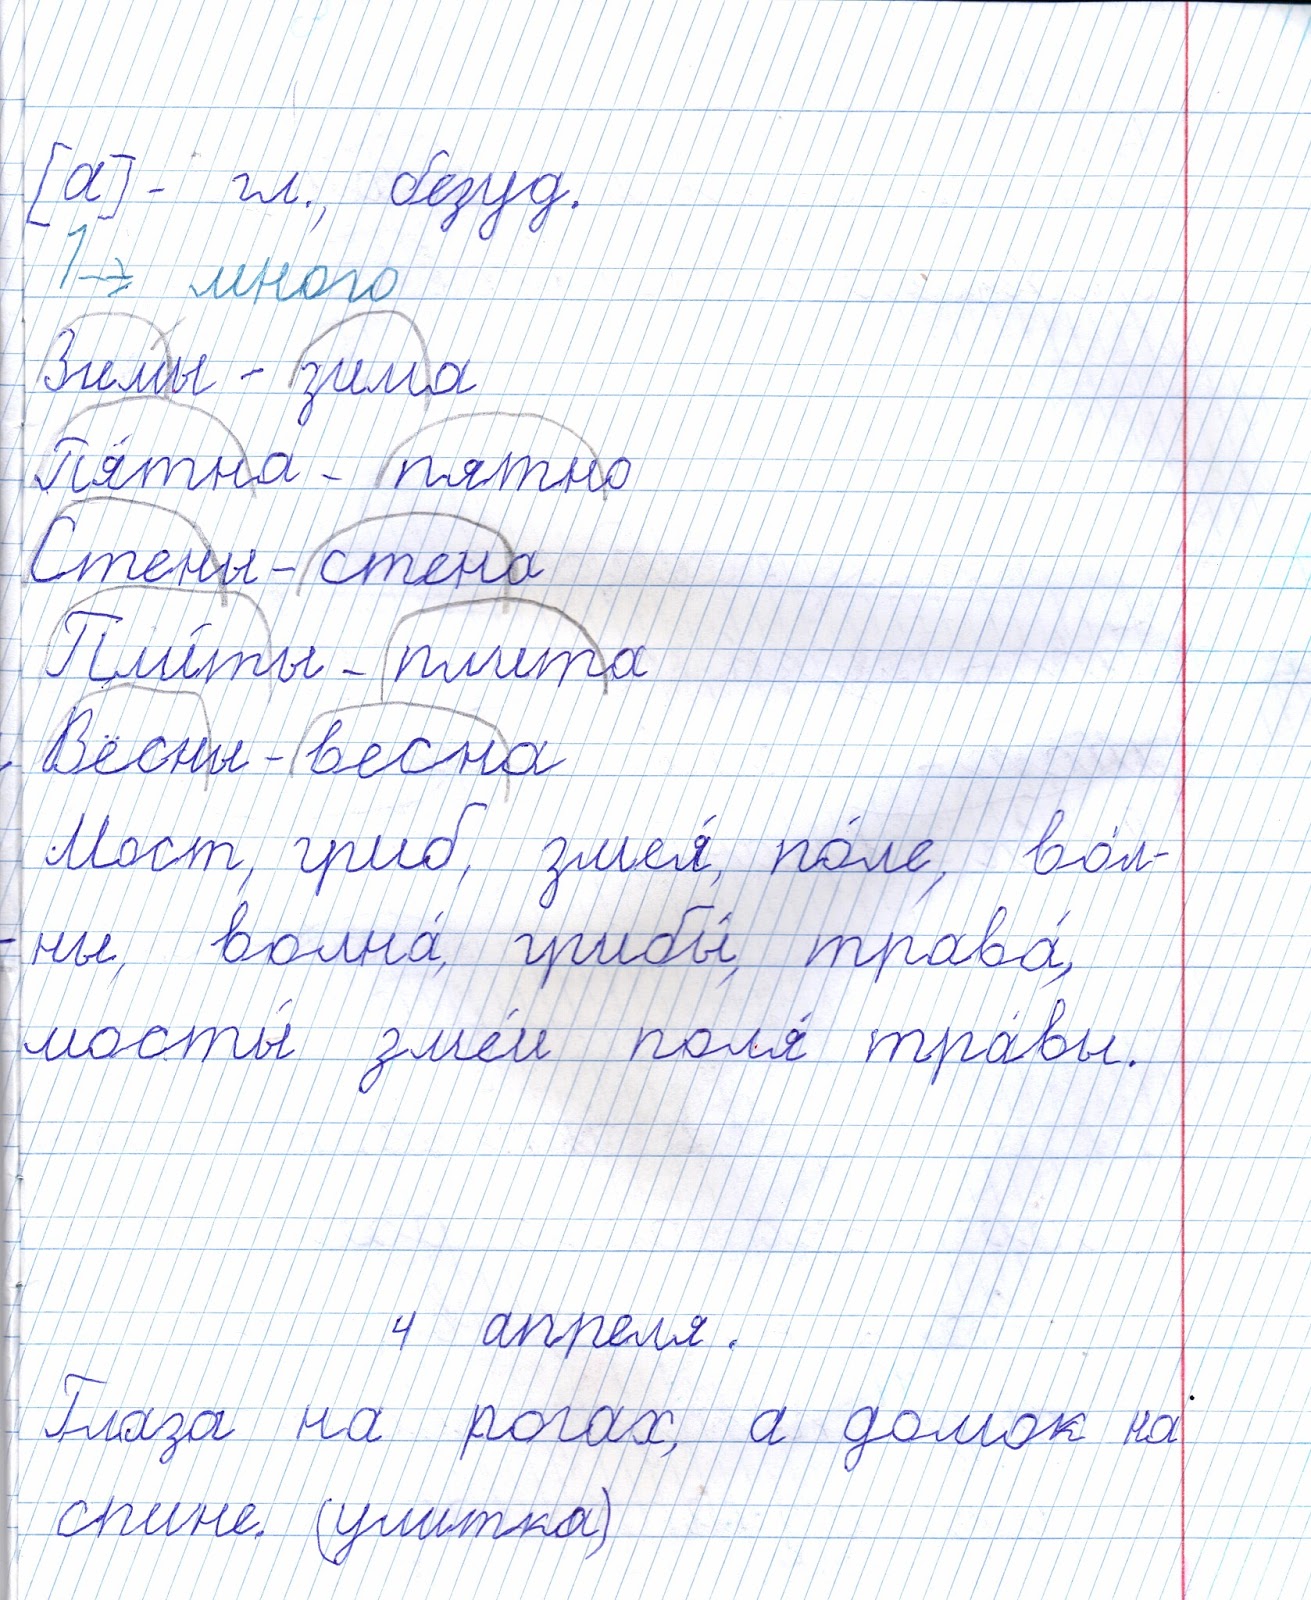 [а]- гл., безуд.
1→ много
Зимы - зима
Пя́тна - пятно
Стены - стена
Пли́ты - плита
Вёсны - весна
Мост, гриб, змея́, по́ле, во́л-
-ны, волна́, грибы́, трава́,
мосты́ зме́и поля́ тра́вы.
4 апреля.
Глаза на рогах, а домок на
спине. (улитка)